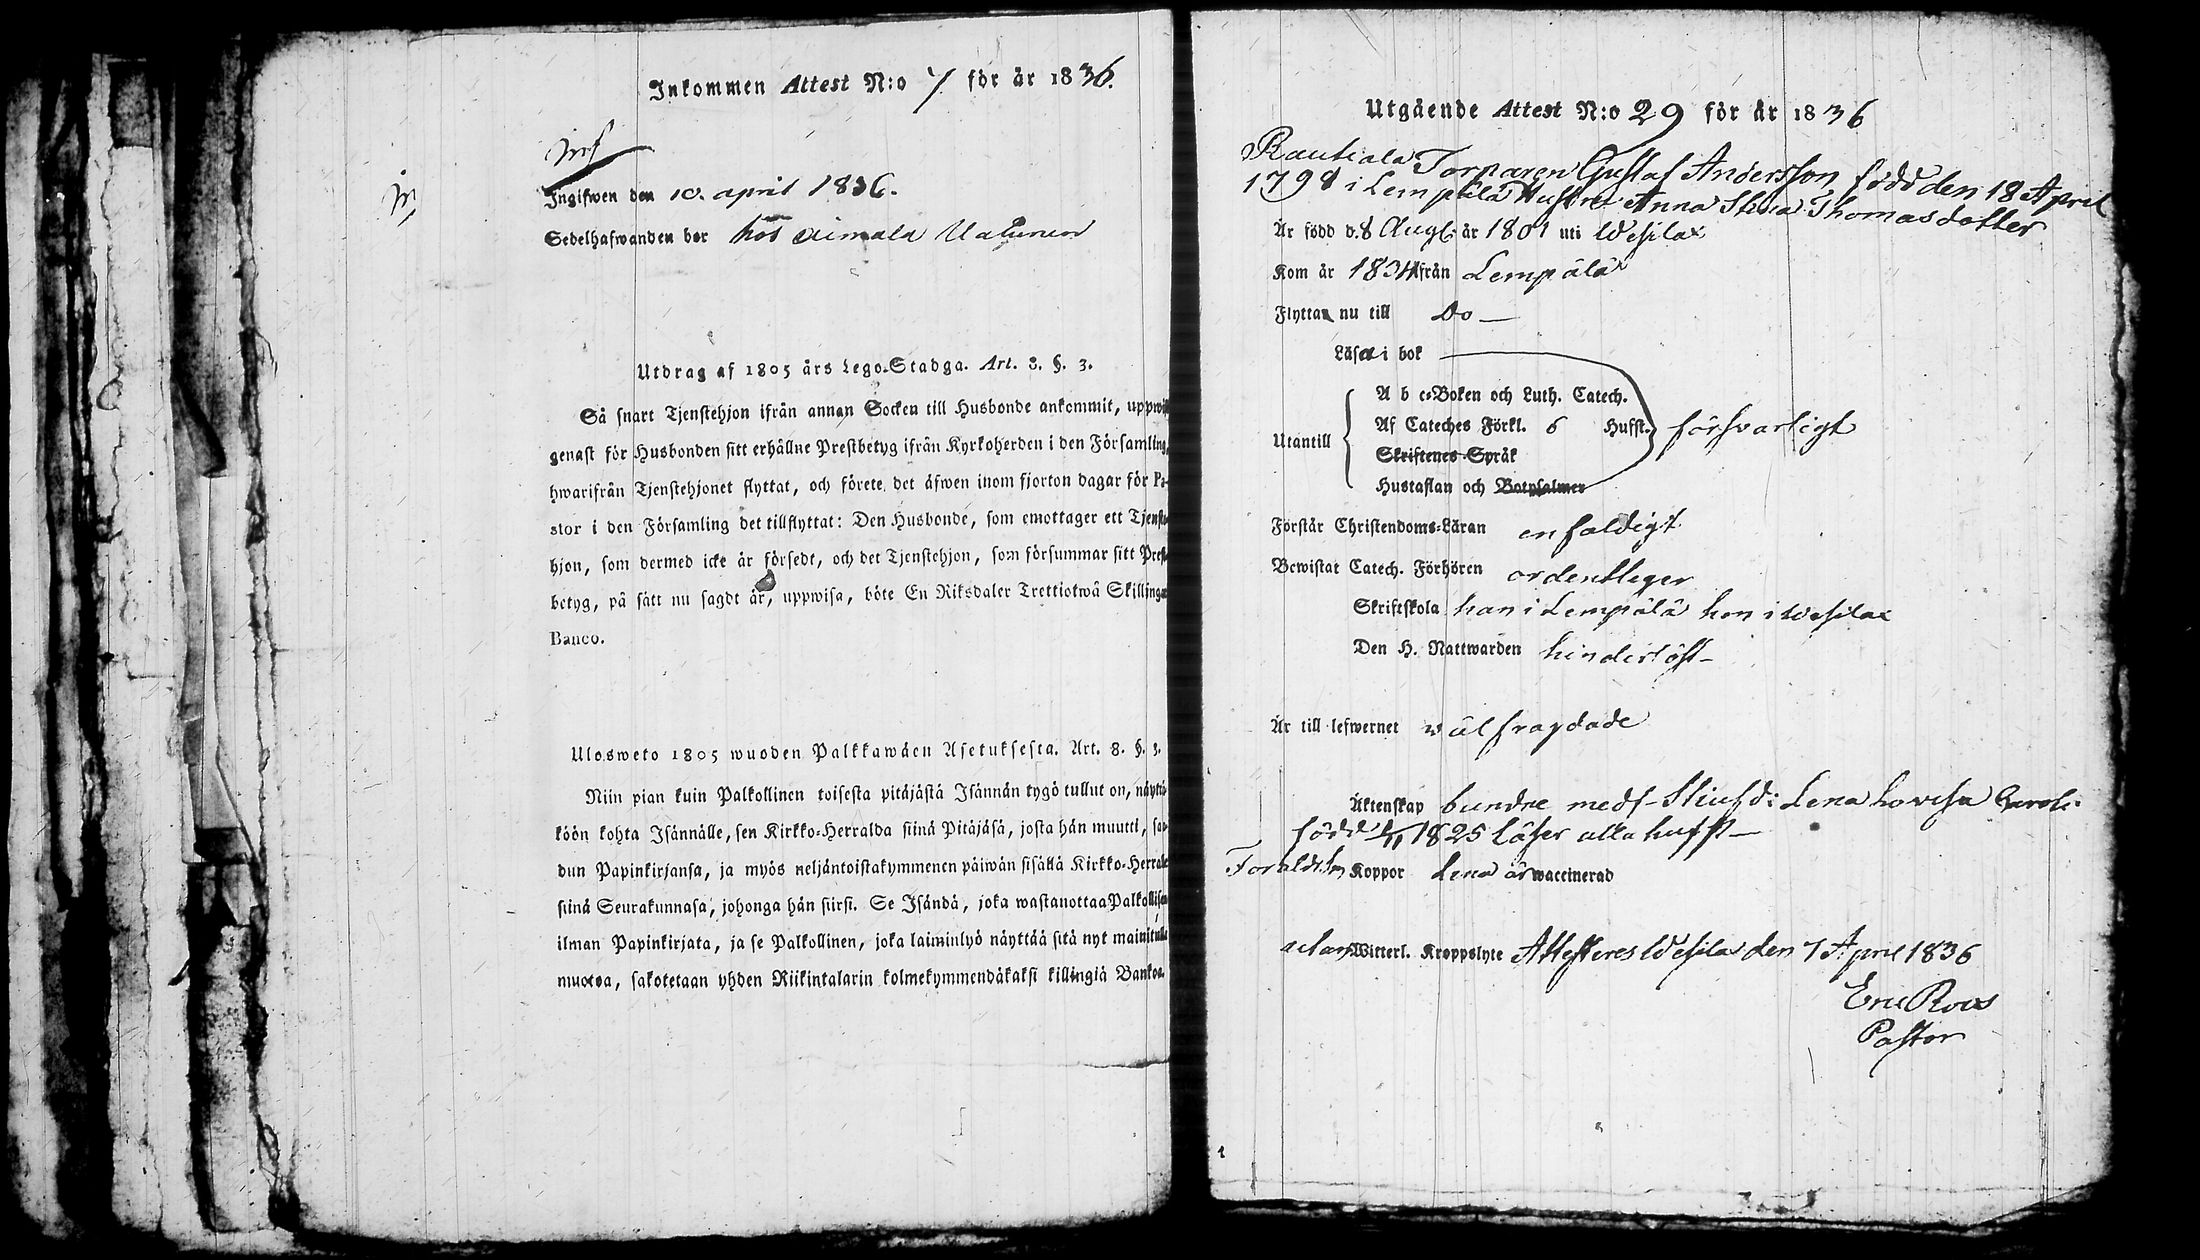 Inkommen Attest N:o 7 för år 1836.
Ingifwen den 10. april 1836.
Sedelhafwanden bor hos
Utdrag af 1805 års Lego-Stadga. Art. 8. §. 3.
Så snart Tjenstehjon ifrån annan Socken till Husbonde ankommit, uppwis
genast för Husbonden sitt erhållne Prestbetyg ifrån Kyrkoherden i den Församling,
hwarifrån Tjenstehjonet flyttat, och förete det äfwen inom fjorton dagar för Pa-
stor i den Församling det tillflyttat: Den Husbonde, som emottager ett Tjenste-
hjon, som dermed icke är försedt, och det Tjenstehjon, som försummar sitt Prest-
betyg, på sätt nu sagdt är, uppwisa, böte En Riksdaler Trettiotwå Skillingar
Banco.
Ulosweto 1805 wuoden Palkkawäen Asetuksesta. Art. 8. §. 3.
Niin pian kuin Palkollinen toisesta pitäjästä Isännän tygö tullut on, näyttä-
köön kohta Isännälle, sen Kirkko-Herralda siinä Pitäjäsä, josta hän muutti, saa-
dun Papinkirjansa, ja myös neljäntoistakymmenen päiwän sisällä Kirkko-Herralle
siinä Seurakunnasa, johonga hän siirsi. Se Isändä, joka wastanottaa Palkollisen
ilman Papinkirjata, ja se Palkollinen, joka laiminlyö näyttää sitä nyt mainitulla
muotoa, sakotetaan yhden Riikintalarin kolmekymmendäkaksi killingiä Bankoa.
Utgående Attest N:o 29 för år 1836
Rautiala Torparen Gustaf Andersson född den 18 April
1798 i Lempälä Hustru Anna Stina Thomasdotter
Är född d. 8 Aug. år 1801 uti Wesilax
Kom år 1834 från Lempälä
Flyttar nu till Do —
Läsa i bok
A b c-Boken och Luth. Catech.
Utantill Af Cateches Förkl. 6 Hufst. försvarligt
Skriftenes Språk
Hustaflan och Botpsalmer
Förstår Christendoms-Läran enfaldigt
Bewistat Catech. Förhören ordentligen
Skriftskola han i Lempälä hon i Wesilax
Den H. Nattwarden hinderlöst
Är till lefwernet wälfrägdade
Äktenskap bundne med Stiufd: Lena Lovisa
född 1825 läser alla hufst —
Koppor Lena är waccinerad
utan Witterl. Kroppslyte Attesteres Wesilax den 7 April 1836
Eric Roos
Pastor